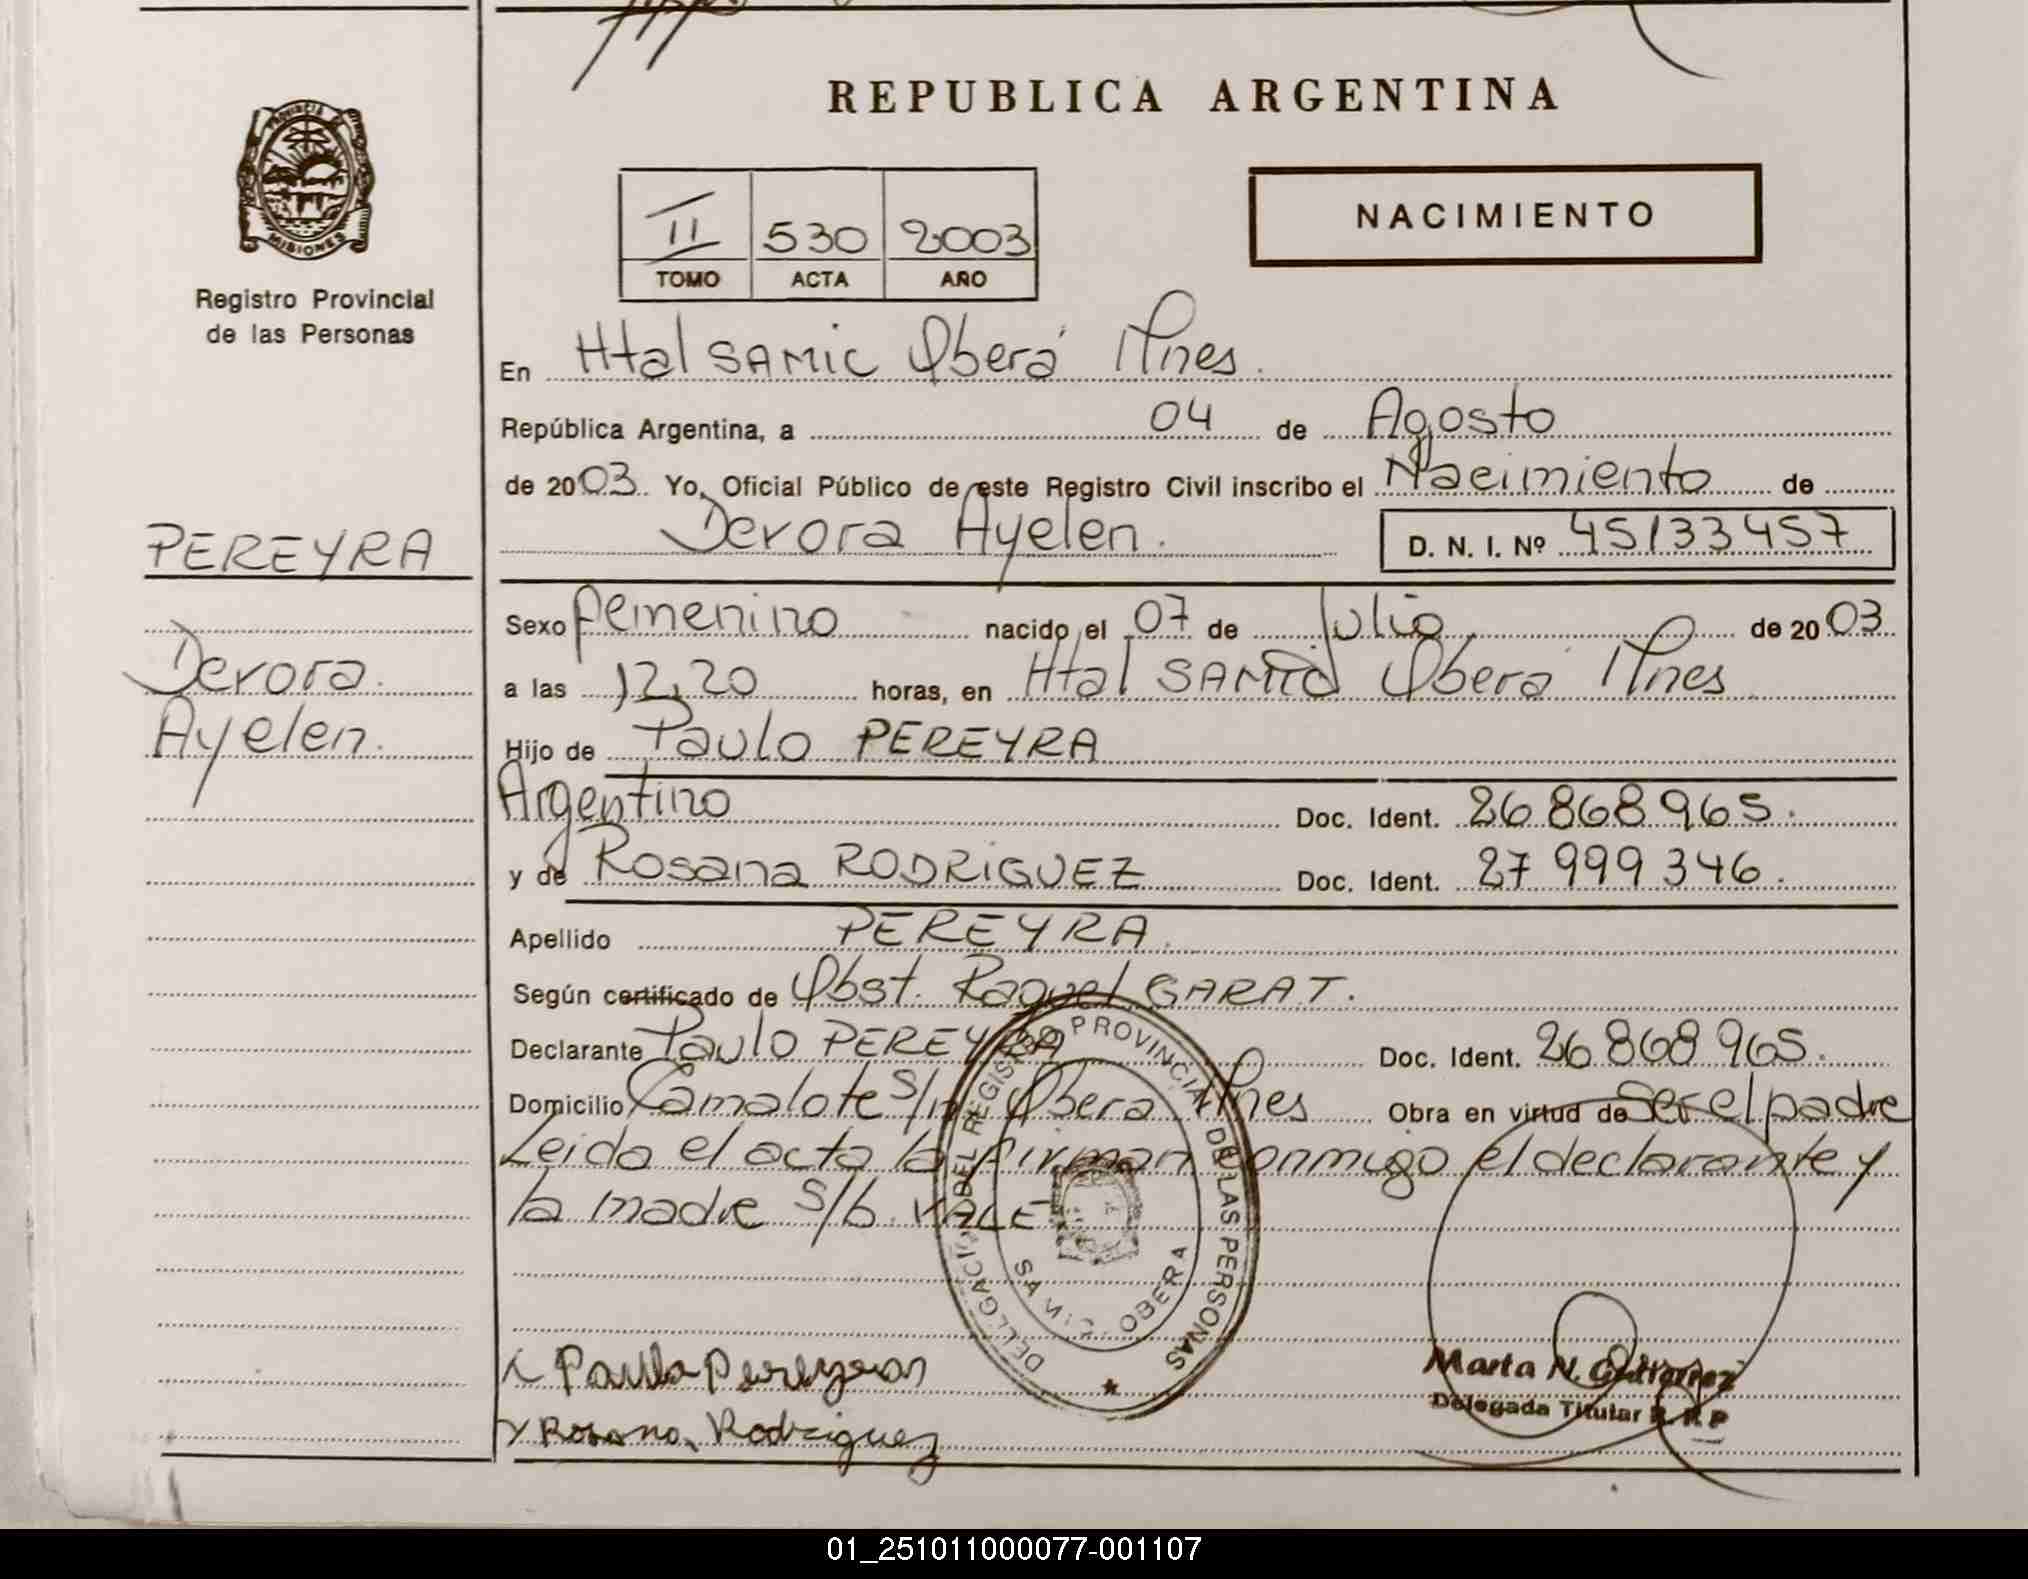 REPUBLICA ARGENTINA
PROVINCIA DE
MISIONES
Registro Provincial
de las Personas
II 530 2003
TOMO ACTA AÑO
NACIMIENTO
En Htal SAMIC Oberá Mnes.
República Argentina, a 04 de Agosto
de 2003. Yo, Oficial Público de este Registro Civil inscribo el Nacimiento de
Devora Ayelen. D. N. I. Nº 45133457
PEREYRA
Devora
Ayelen.
Sexo femenino nacido el 07 de Julio de 2003
a las 12,20 horas, en Htal SAMIC Oberá Mnes
Hijo de Paulo PEREYRA
Argentino Doc. Ident. 26 868 965.
y de Rosana RODRIGUEZ Doc. Ident. 27 999 346.
Apellido PEREYRA.
Según certificado de Obst. Raquel GARAT.
Declarante Paulo PEREYRA Doc. Ident. 26 868 965.
Domicilio Camalote s/n Obera Mnes Obra en virtud de Ser el padre
Leida el acta la firman conmigo el declarante y
la madre s/b. VALE
DELEGACION DEL REGISTRO PROVINCIAL DE LAS PERSONAS
OBERA
x Paulo Pereyra
x Rosana Rodriguez
Marta N. Gutierrez
Delegada Titular R. P. P
01_251011000077-001107